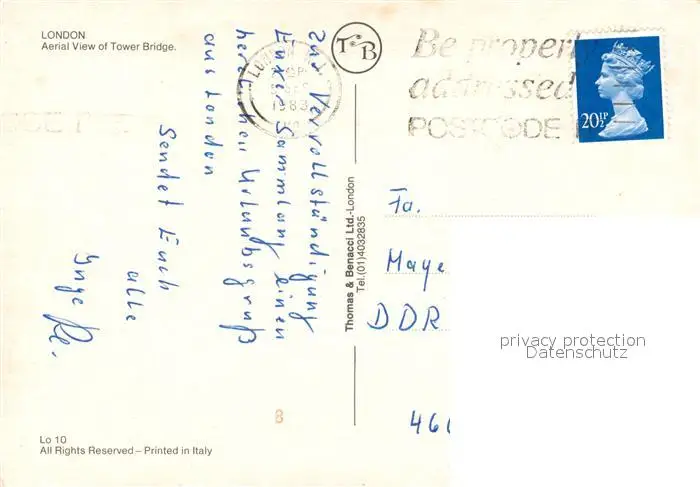 LONDON
Aerial View of Tower Bridge.
Zur Vervollständigung
Eurer Sammlung einen
herzlichen Urlaubsgruß
aus London
Sendet Euch
alle
Inge
T&B
LONDON
1983
Be properly
addressed
POSTCODE
20½P
Thomas & Benacci Ltd.-London
Tel.(01)4032835
Fa.
Maye
DDR
privacy protection
Datenschutz
46
8
Lo 10
All Rights Reserved – Printed in Italy